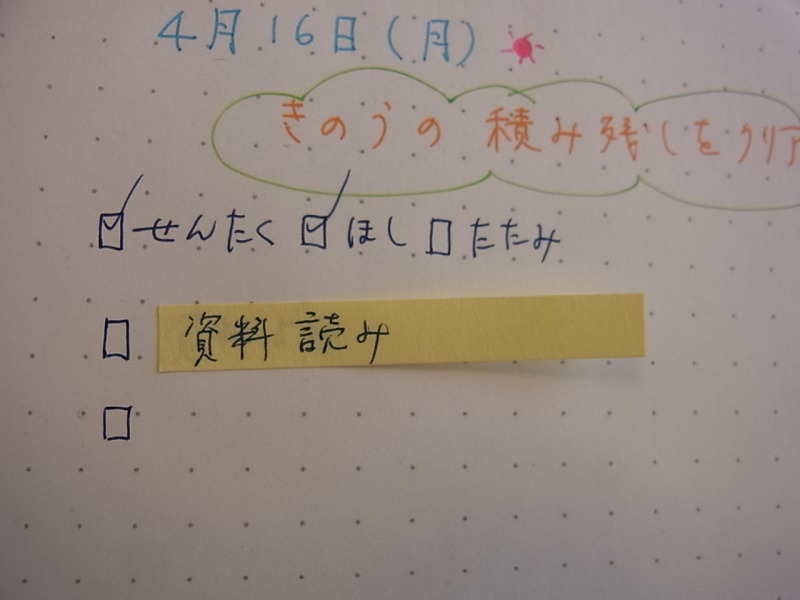 4月16日(月)
きのうの 積み残しをクリア
せんたく ほし たたみ
資料 読み